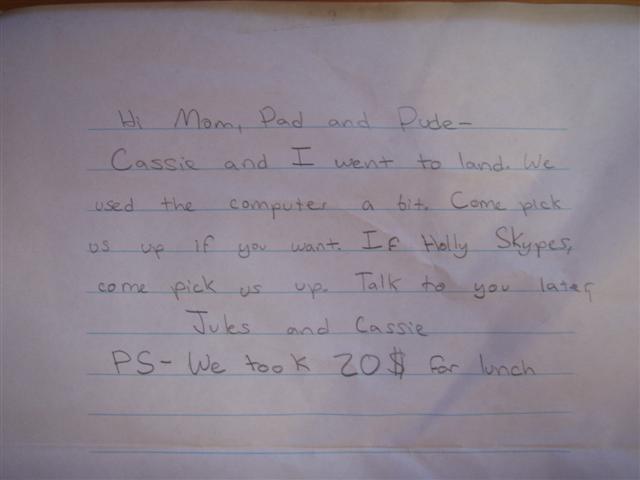 Hi Mom, Dad and Dude-
Cassie and I went to land. We
used the computer a bit. Come pick
us up if you want. If Holly Skypes,
come pick us up. Talk to you later,
Jules and Cassie
PS- We took 20$ for lunch